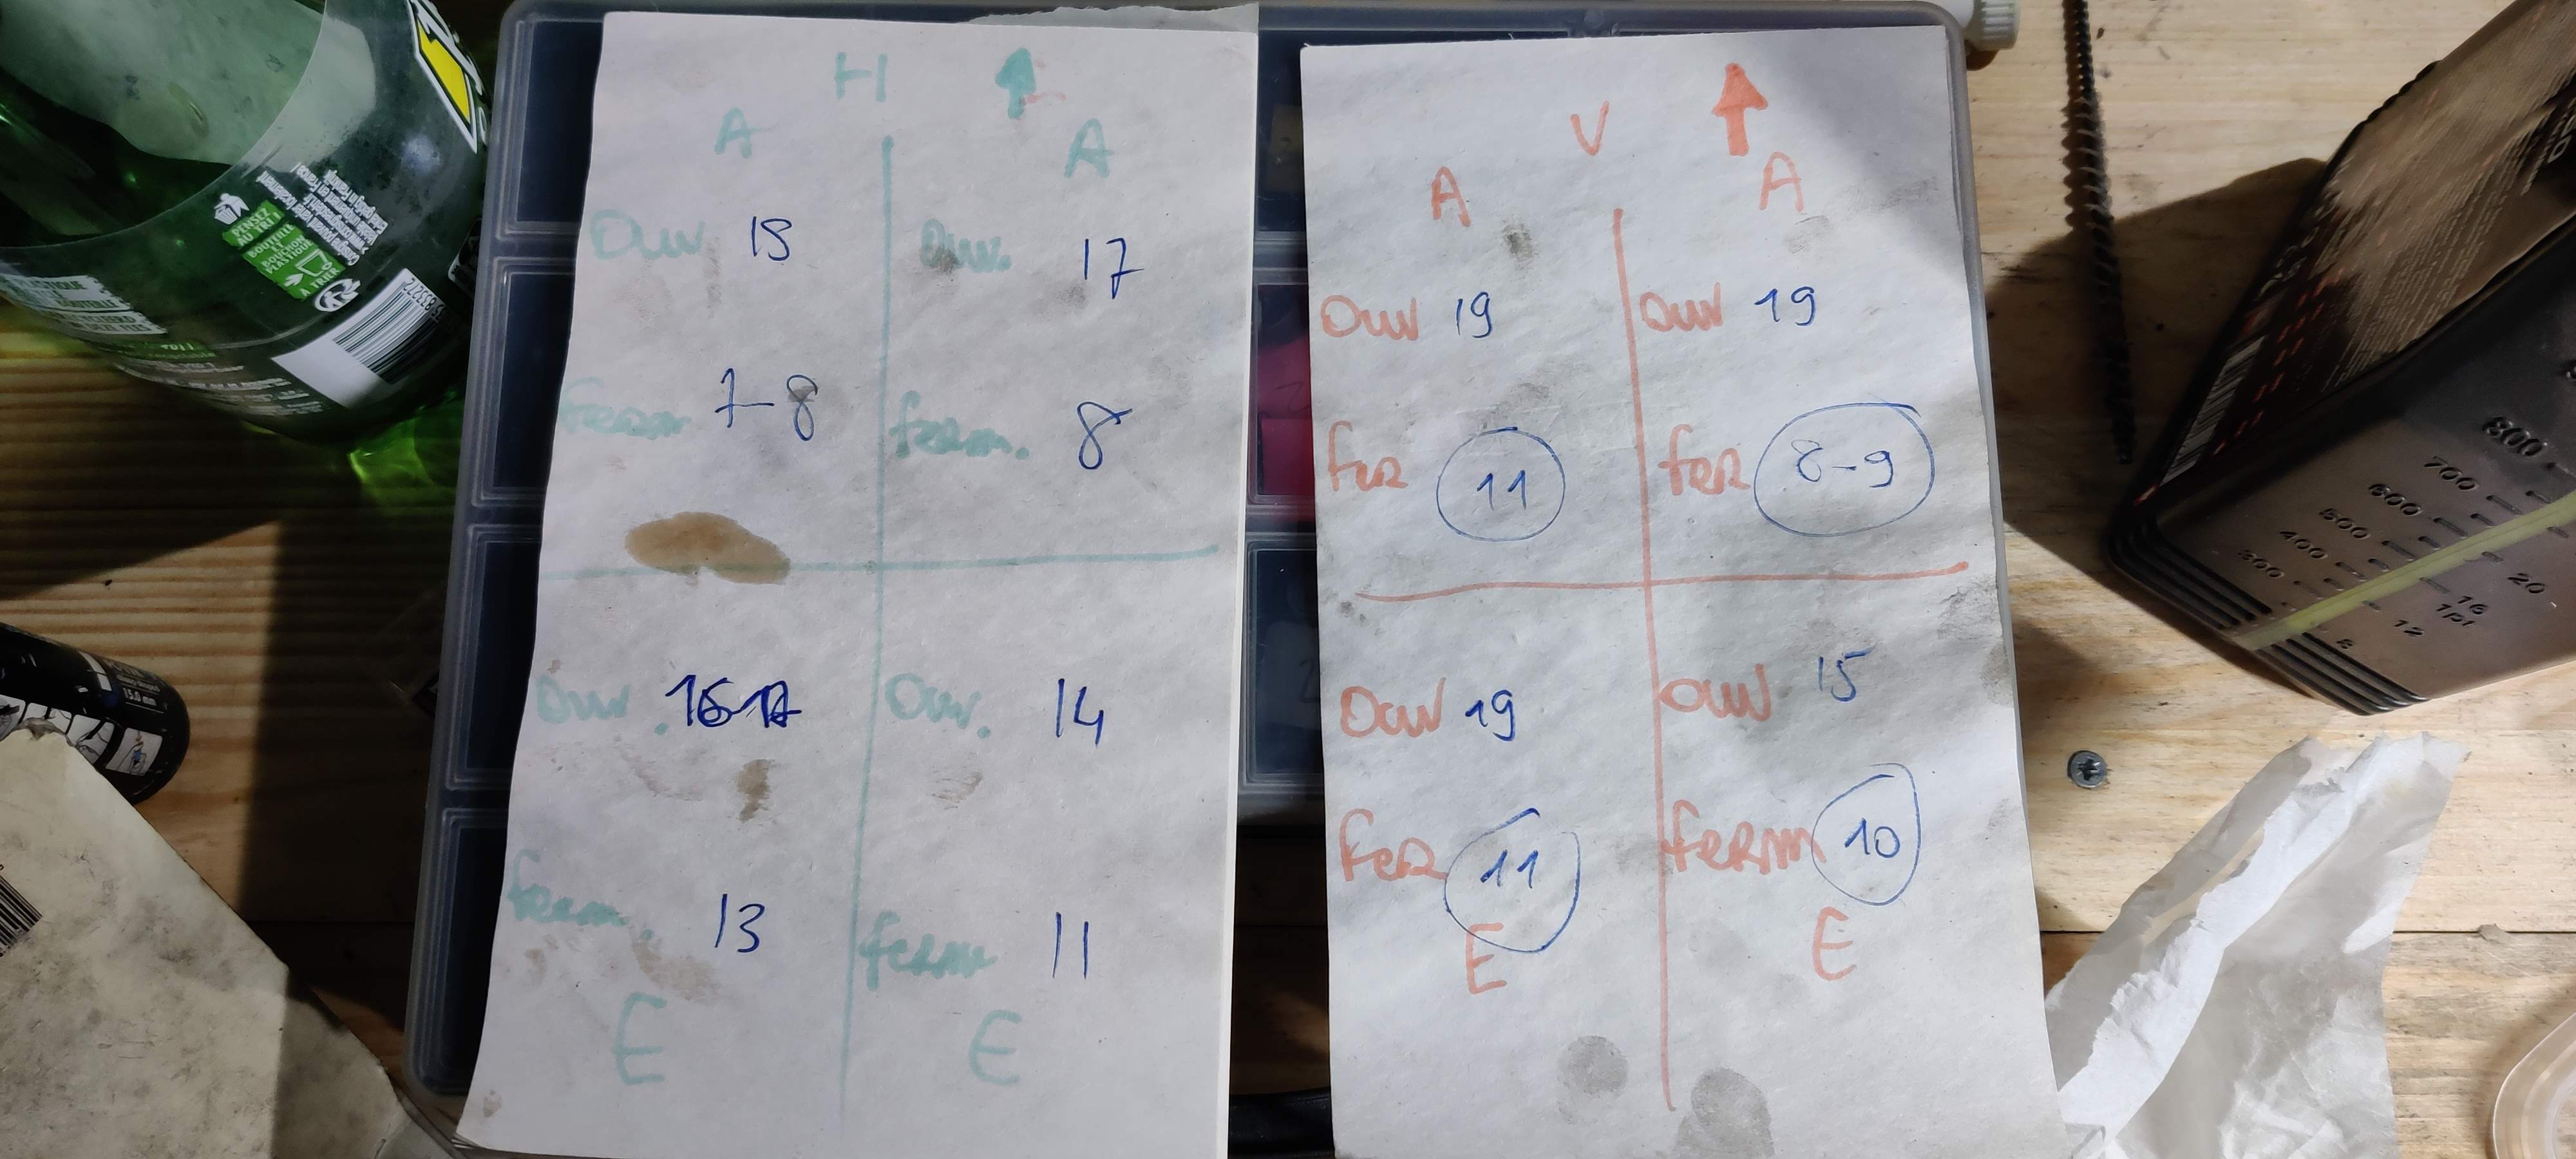 H
A
A
Ouv 15
Ouv. 17
Ferm 7-8
ferm. 8
Ouv. 16-17
Ouv. 14
Ferm. 13
ferm 11
E
E
V
A
A
Ouv 19
Ouv 19
Fer 11
fer 8-9
Ouv 19
Ouv 15
Fer 11
ferm 10
E
E
PENSEZ
AU TRI !
BOUTEILLE
ET
BOUCHON
PLASTIQUE
À TRIER
800
700
600
500
400
300
20
16
1pt
12
8